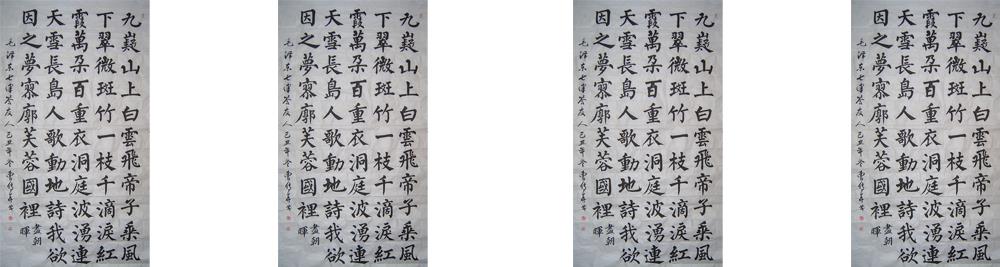 九嶷山上白雲飛帝子乘風
下翠微斑竹一枝千滴淚紅
霞萬朵百重衣洞庭波湧連
天雪長島人歌動地詩我欲
因之夢寥廓芙蓉國裡盡朝暉
毛澤東七律答友人己丑年冬
九嶷山上白雲飛帝子乘風
下翠微斑竹一枝千滴淚紅
霞萬朵百重衣洞庭波湧連
天雪長島人歌動地詩我欲
因之夢寥廓芙蓉國裡盡朝暉
毛澤東七律答友人己丑年冬
九嶷山上白雲飛帝子乘風
下翠微斑竹一枝千滴淚紅
霞萬朵百重衣洞庭波湧連
天雪長島人歌動地詩我欲
因之夢寥廓芙蓉國裡盡朝暉
毛澤東七律答友人己丑年冬
九嶷山上白雲飛帝子乘風
下翠微斑竹一枝千滴淚紅
霞萬朵百重衣洞庭波湧連
天雪長島人歌動地詩我欲
因之夢寥廓芙蓉國裡盡朝暉
毛澤東七律答友人己丑年冬